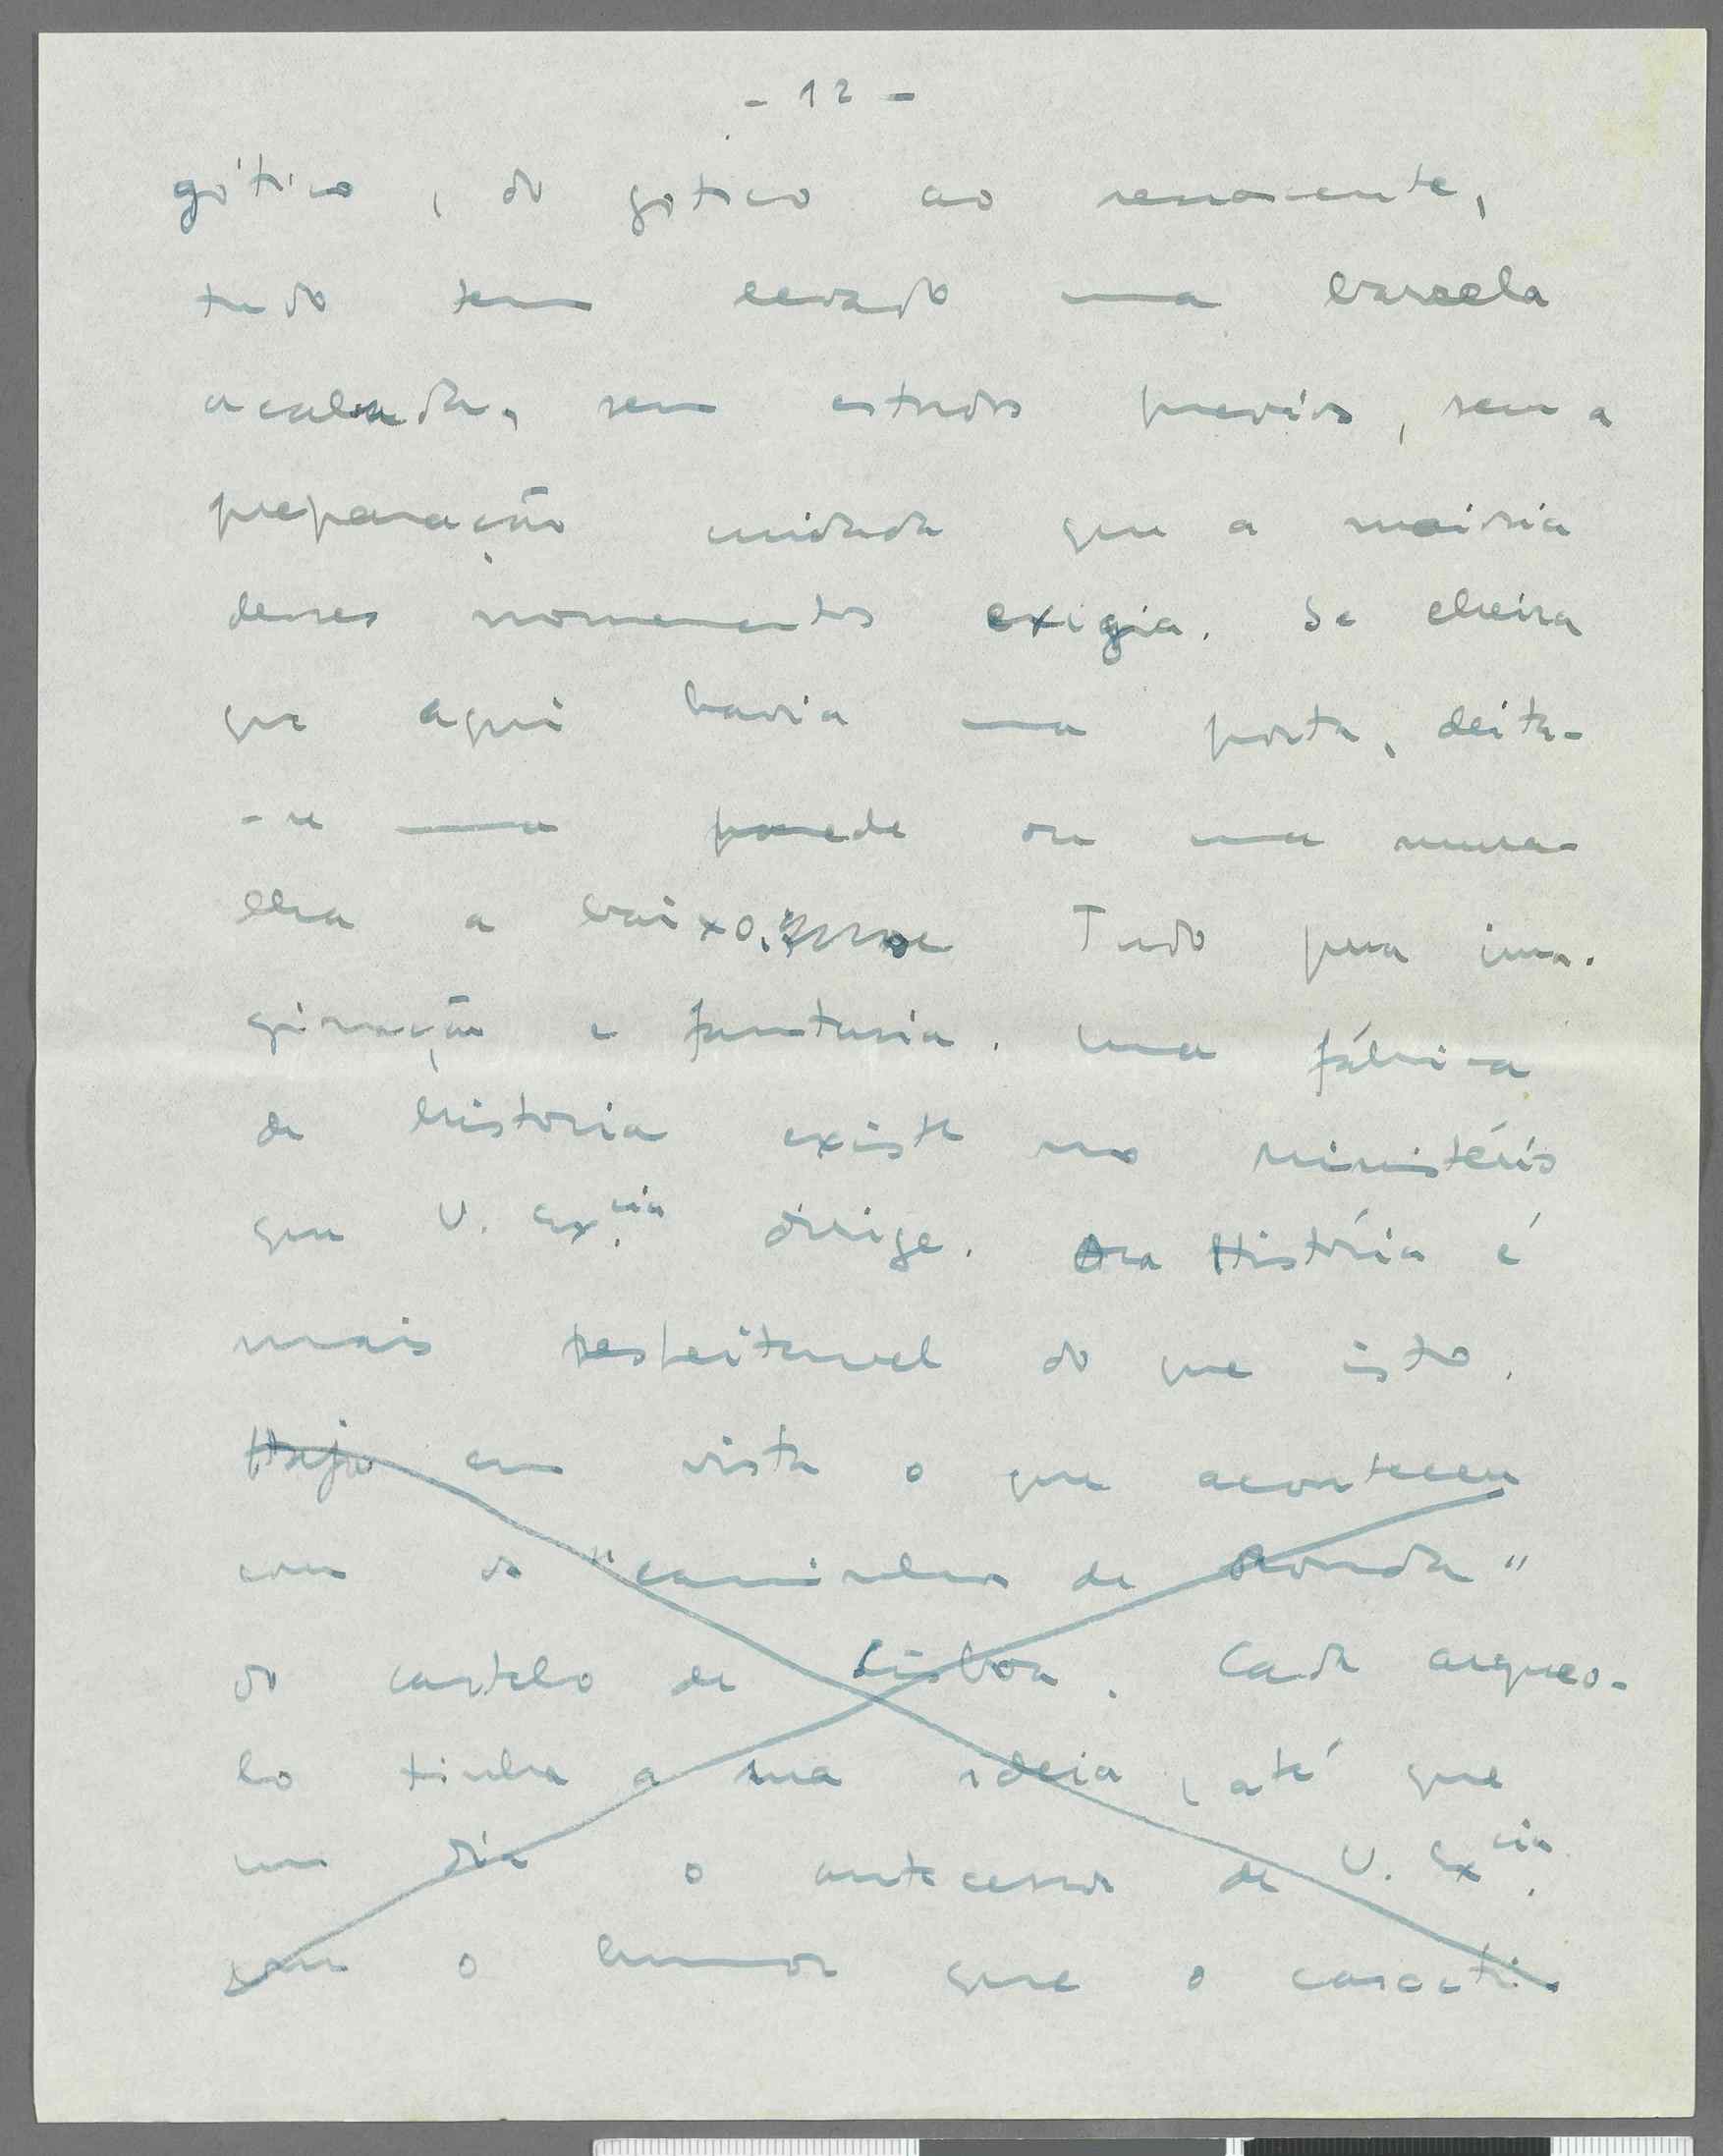 - 12 -
gótico, do gotico ao renascente,
tudo tem levado uma barrela
acabada, sem estudos previos, sem a
preparação cuidada que a maioria
desses monumentos exigia. Se cheira
que aqui havia uma porta, deita-
-se uma parede ou uma mura-
lha a baixo. Tudo pura ima-
ginação e fantasia. Uma fábrica
de historia existe no ministério
que V. Ex.cia dirige. Ora História é
mais respeitavel do que isto.
Haja em vista o que aconteceu
com os "caminhos de Ronda"
do castelo de Lisboa. Cada arqueo-
lo tinha a sua ideia, até que
um dia o antecessor de V. Ex.cia
com o humor que o caracteri-